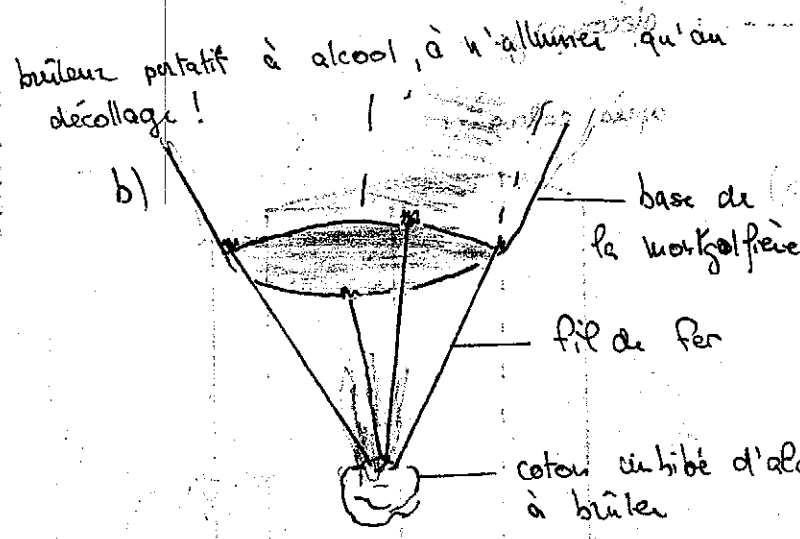 brûleur portatif à alcool, à n'allumer qu'au
décollage !
b)
base de
la montgolfière
fil de fer
coton imbibé d'alc
à brûler